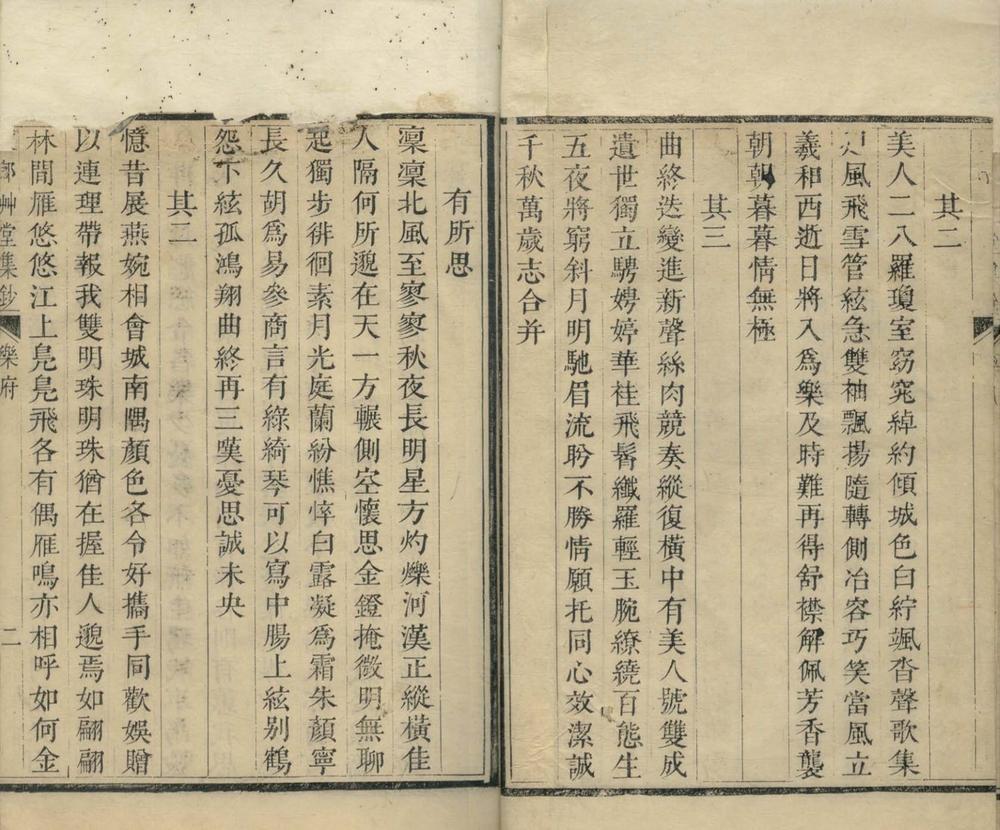 其二
美人二八羅瓊室窈窕綽約傾城色白紵颯沓聲歌集
風飛雪管絃急雙袖飄揚隨轉側冶容巧笑當風立
羲和西逝日將入爲樂及時難再得舒襟解佩芳香襲
朝朝暮暮情無極
其三
曲終迭變進新聲絲肉競奏縱復橫中有美人號雙成
遺世獨立騁娉婷華袿飛髾纖羅輕玉腕繚繞百態生
五夜將窮斜月明馳眉流盼不勝情願托同心效潔誠
千秋萬歲志合并
有所思
凜凜北風至寥寥秋夜長明星方灼爍河漢正縱橫佳
人隔何所邈在天一方輾側空懷思金鐙掩微明無聊
起獨步徘徊素月光庭蘭紛憔悴白露凝爲霜朱顏寧
長久胡爲易參商言有綠綺琴可以寫中腸上絃别鶴
怨下絃孤鴻翔曲終再三嘆憂思誠未央
其二
憶昔展燕婉相會城南隅顏色各令好攜手同歡娛贈
以連理帶報我雙明珠明珠猶在握佳人邈焉如翩翩
林間雁悠悠江上鳧鳧飛各有偶雁鳴亦相呼如何金
艸堂集鈔 樂府 二